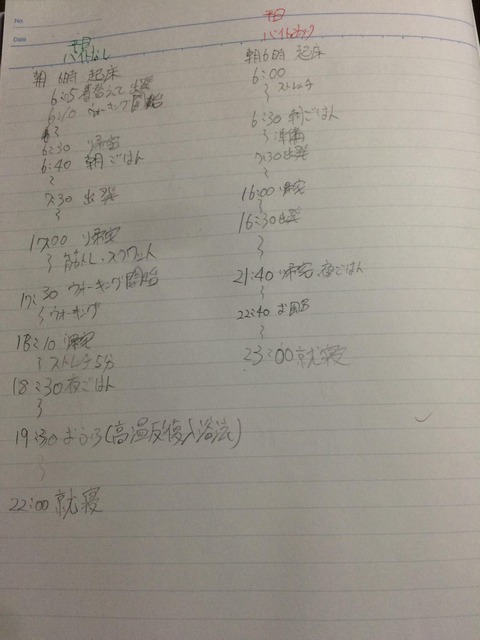 No.
Date
平日
バイトなし
朝 6時 起床
6:05 着替えて出発
6:10 ウォーキング開始
〜
6:30 帰宅
6:40 朝ごはん
〜
7:30 出発
〜
17:00 帰宅
〜 筋トレ、スクワット
17:30 ウォーキング開始
〜 ウォーキング
18:10 帰宅
〜 ストレチ5分
18:30 夜ごはん
〜
19:30 おふろ(高温反復入浴法)
〜
22:00 就寝
平日
朝6時 起床
6:00
〜 ストレッチ
6:30 朝ごはん
〜 準備
7:30 出発
〜
16:00 帰宅
〜
16:30 出発
〜
21:40 帰宅、夜ごはん
〜
22:40 お風呂
〜
23:00 就寝